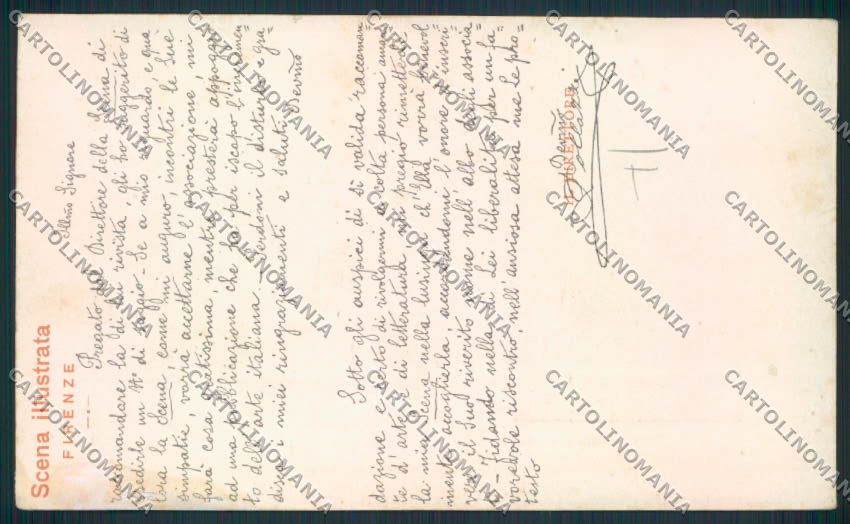 Scena illustrata
FIRENZE
Illmo Signore
Pregato dal Direttore della Scena di
raccomandare la di lui rivista, gli ho suggerito di
spedirle un N° di saggio - Se a mio riguardo, e qua
lora la Scena, come mi auguro, incontri le Sue
simpatie, vorrà accettarne l'associazione, mi
farà cosa gratissima, mentre presterà appoggio
ad una pubblicazione che ha per iscopo l'incremen=
to dell'arte italiana - Perdoni il disturbo e gra
disca i miei ringraziamenti e saluti. Devmo
Sotto gli auspici di sì valida raccoman
dazione e certo di rivolgermi a colta persona aman=
te d'arte e di letteratura, mi pregio rimetterle
la mia Scena nella lusinga ch'Ella vorrà benevol
mente accoglierla accordandomi l'onore d'inscri=
vere il Suo riverito nome nell'albo degli associa=
ti - Fidando nella di Lei liberalità per un fa=
vorevole riscontro, nell'ansiosa attesa me le pro=
testo
Devmo
IL DIRETTORE
CARTOLINOMANIA